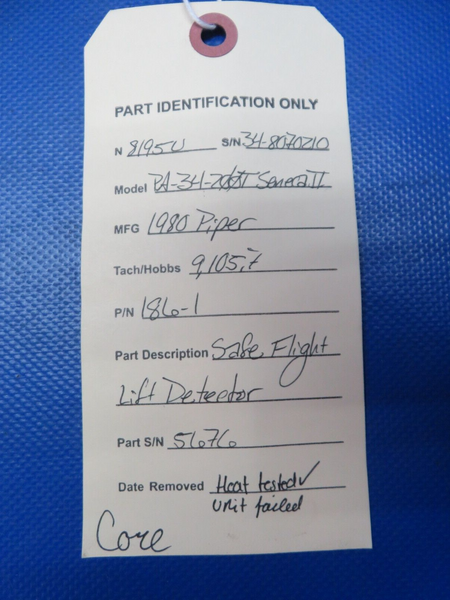 PART IDENTIFICATION ONLY
N 8195U S/N 34-8070210
Model PA-34-200T Seneca II
MFG 1980 Piper
Tach/Hobbs 9,105.7
P/N 186-1
Part Description Safe Flight
Lift Detector
Part S/N 5676
Date Removed Heat tested ✓
Unit failed
Core